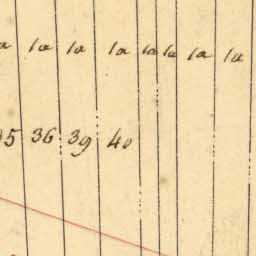 1a 1a 1a 1a 1a 1a 1a
36 39 40